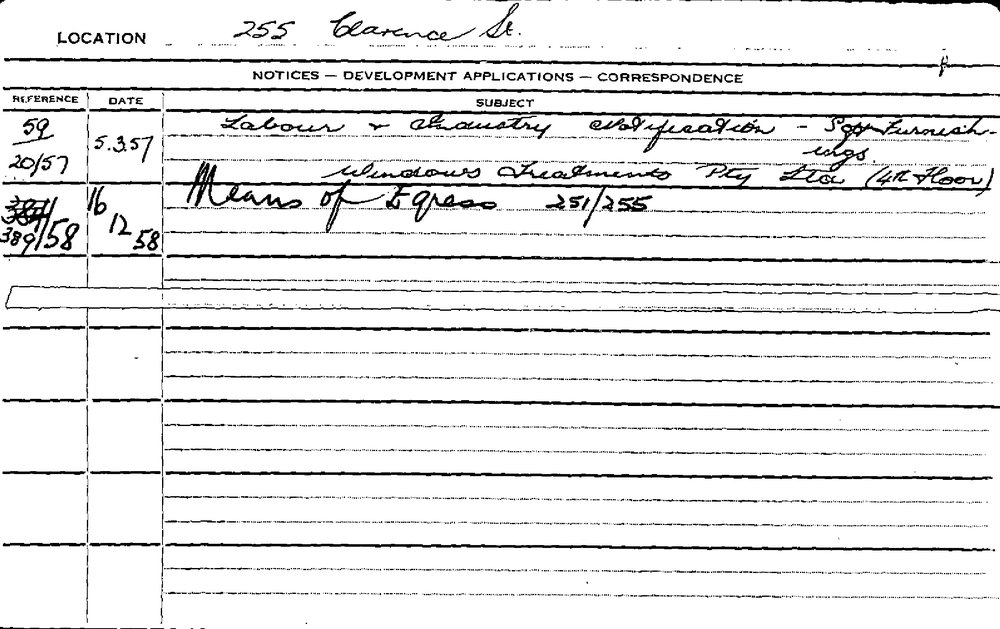 LOCATION 255 Clarence St.
NOTICES — DEVELOPMENT APPLICATIONS — CORRESPONDENCE
REFERENCE DATE SUBJECT
59 Labour & Industry Notification - Soft Furnish-
5.3.57 ings.
20/57 Windows Treatments Pty Ltd (4th Floor)
16 Means of Egress 251/255
389/58 12 58